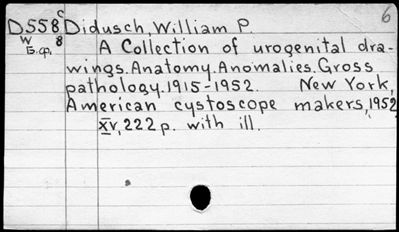 c 6
D558 Didusch, William P.
w 8 A Collection of urogenital dra-
Б.ф. wings. Anatomy. Anomalies. Gross
pathology. 1915-1952. New York,
American cystoscope makers, 1952
XV, 222 p. with ill.